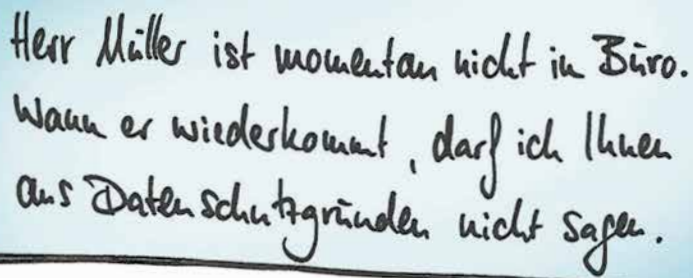 Herr Müller ist momentan nicht in Büro.
Wann er wiederkommt, darf ich Ihnen
aus Datenschutzgründen nicht sagen.